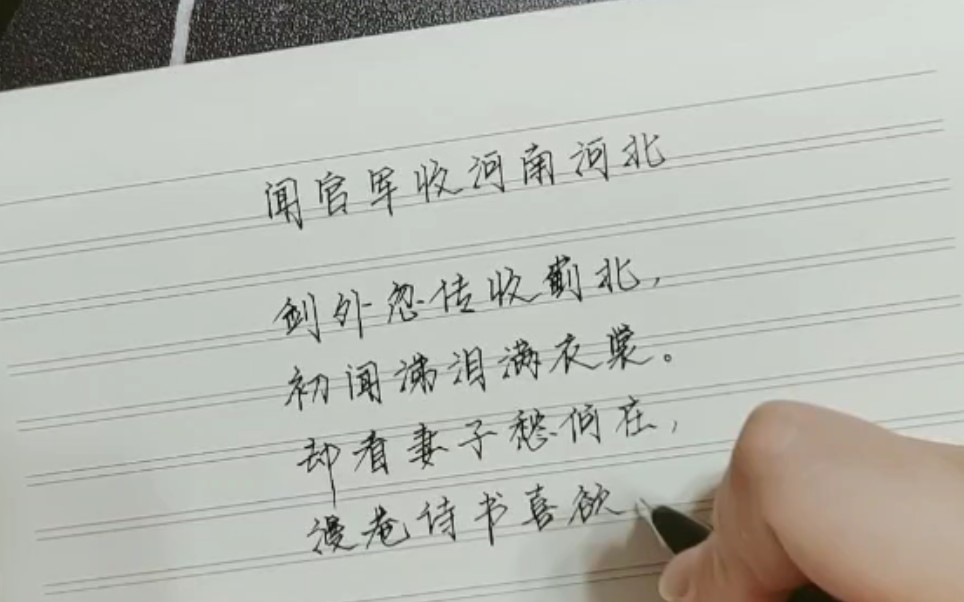 闻官军收河南河北
剑外忽传收蓟北,
初闻涕泪满衣裳。
却看妻子愁何在,
漫卷诗书喜欲